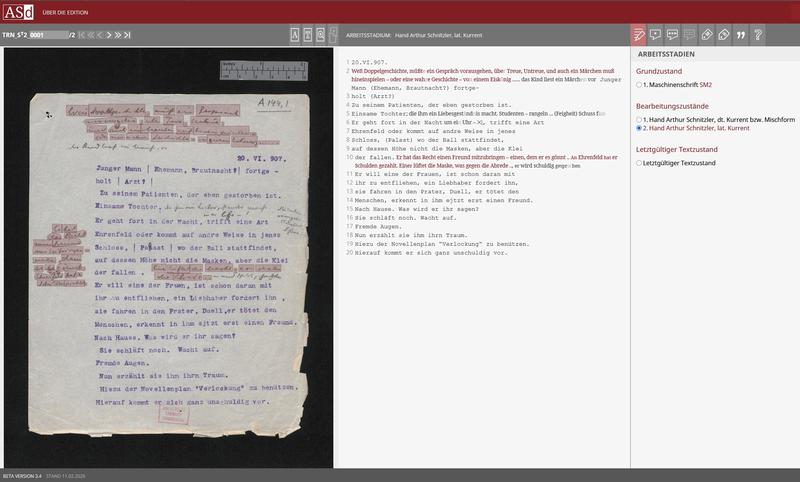 ASd ÜBER DIE EDITION
TRN_S°2_0001 /2
ARBEITSSTADIUM: Hand Arthur Schnitzler, lat. Kurrent
A 144,1
20. VI. 907.
Junger Mann | Ehemann, Brautnacht?| fortge -
holt | Arzt? |
Zu seinem Patienten, der eben gestorben ist.
Einsame Tochter,
Er geht fort in der Nacht, trifft eine Art
Ehrenfeld oder kommt auf andre Weise in jenes
Schloss, | Palast | wo der Ball stattfindet,
auf dessen Höhe nicht die Masken, aber die Klei
der fallen .
Er will eine der Frauen, ist schon daran mit
ihr zu entfliehen, ein Liebhaber fordert ihn ,
sie fahren in den Prater, Duell,er tötet den
Menschen, erkennt in ihm ejtzt erst einen Freund.
Nach Hause. Was wird er ihr sagen?
Sie schläft noch. Wacht auf.
Fremde Augen.
Nun erzählt sie ihm ihren Traum.
Hiezu der Novellenplan "Verlockung" zu benützen.
Hierauf kommt er sich ganz unschuldig vor.
1 20.VI.907.
2 Weß Doppelgeschichte, müßte ein Gespräch vorausgehen, über Treue, Untreue, und auch ein Märchen muß
hineinspielen – oder eine wahre Geschichte – von einem Eisk nig ..... das Kind liest ein Märchen vor Junger
Mann (Ehemann, Brautnacht?) fortge-
3 holt (Arzt?)
4 Zu seinem Patienten, der eben gestorben ist.
5 Einsame Tochter; die ihm ein Liebesgeständnis macht. Studenten – rangeln .. (Feigheit) Schuss f
6 Er geht fort in der Nacht um ei Uhr –, trifft eine Art
7 Ehrenfeld oder kommt auf andre Weise in jenes
8 Schloss, (Palast) wo der Ball stattfindet,
9 auf dessen Höhe nicht die Masken, aber die Klei
10 der fallen. Er hat das Recht einen Freund mitzubringen – einen, dem er es gönnt .. An Ehrenfeld hat er
Schulden gezahlt. Eine lüftet die Maske, was gegen die Abrede ... er wird schuldig gesprochen
11 Er will eine der Frauen, ist schon daran mit
12 ihr zu entfliehen, ein Liebhaber fordert ihn,
13 sie fahren in den Prater, Duell, er tötet den
14 Menschen, erkennt in ihm ejtzt erst einen Freund.
15 Nach Hause. Was wird er ihr sagen?
16 Sie schläft noch. Wacht auf.
17 Fremde Augen.
18 Nun erzählt sie ihm ihrn Traum.
19 Hiezu der Novellenplan "Verlockung" zu benützen.
20 Hierauf kommt er sich ganz unschuldig vor.
ARBEITSSTADIEN
Grundzustand
1. Maschinenschrift SM2
Bearbeitungszustände
1. Hand Arthur Schnitzler, dt. Kurrent bzw. Mischform
2. Hand Arthur Schnitzler, lat. Kurrent
Letztgültiger Textzustand
Letztgültiger Textzustand
BETA VERSION 3.4 STAND 11.02.2026